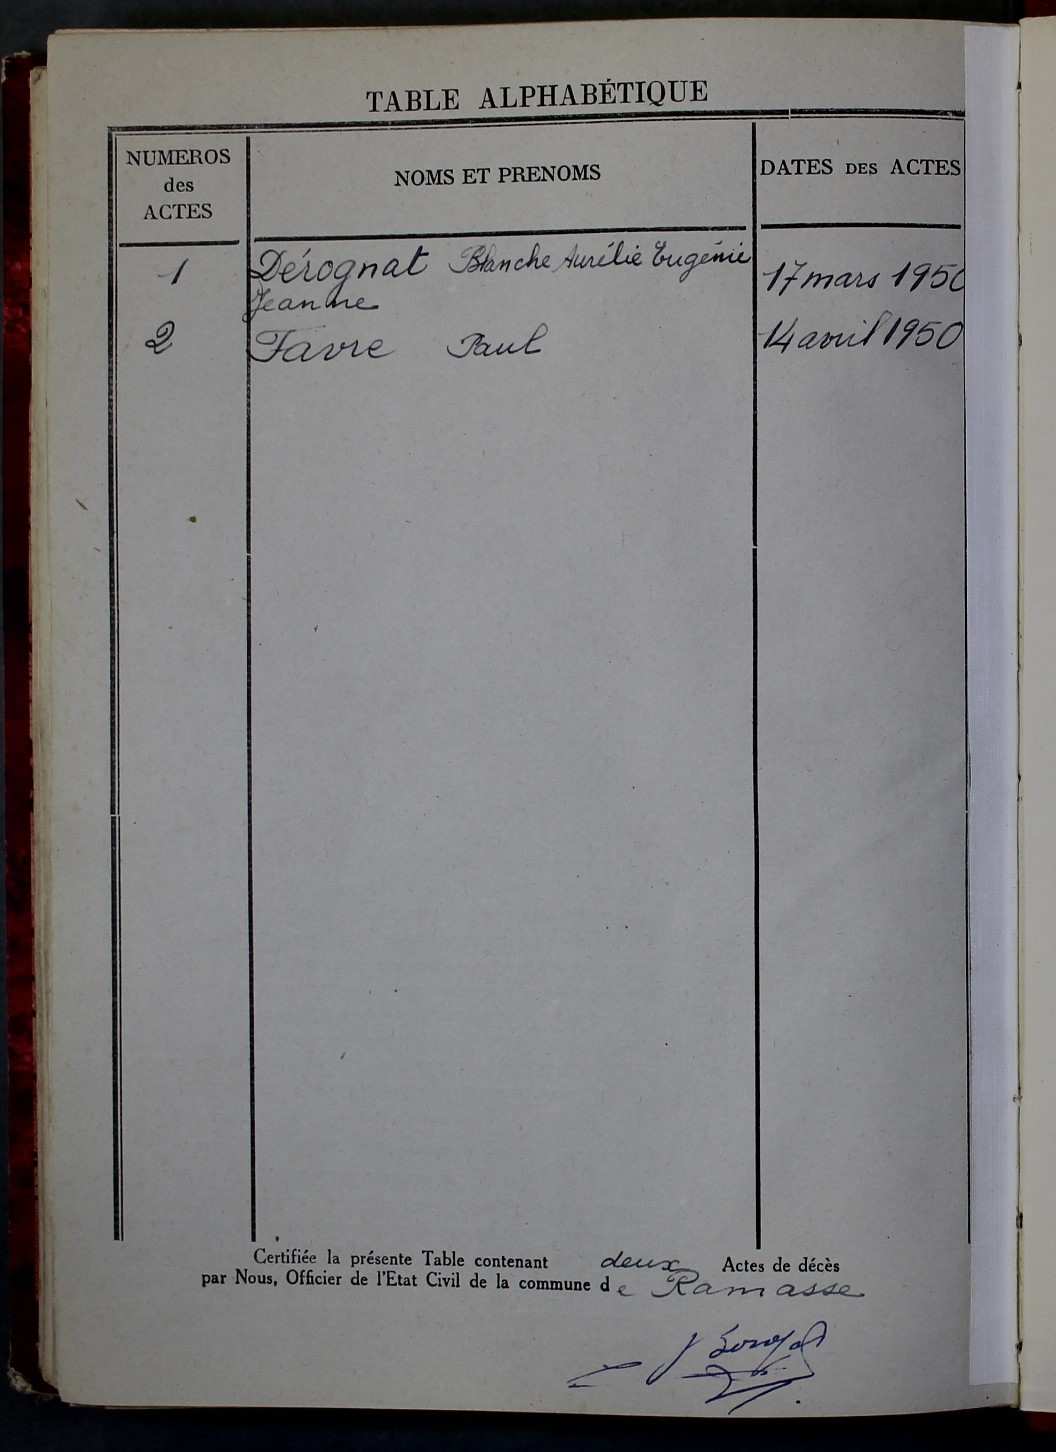 TABLE ALPHABÉTIQUE
NUMEROS
des
ACTES
NOMS ET PRENOMS
DATES DES ACTES
1 Dérognat Blanche Aurélie Eugénie 17 mars 1950
Jeanne
2 Favre Paul 14 avril 1950
Certifiée la présente Table contenant deux Actes de décès
par Nous, Officier de l'Etat Civil de la commune de Ramasse